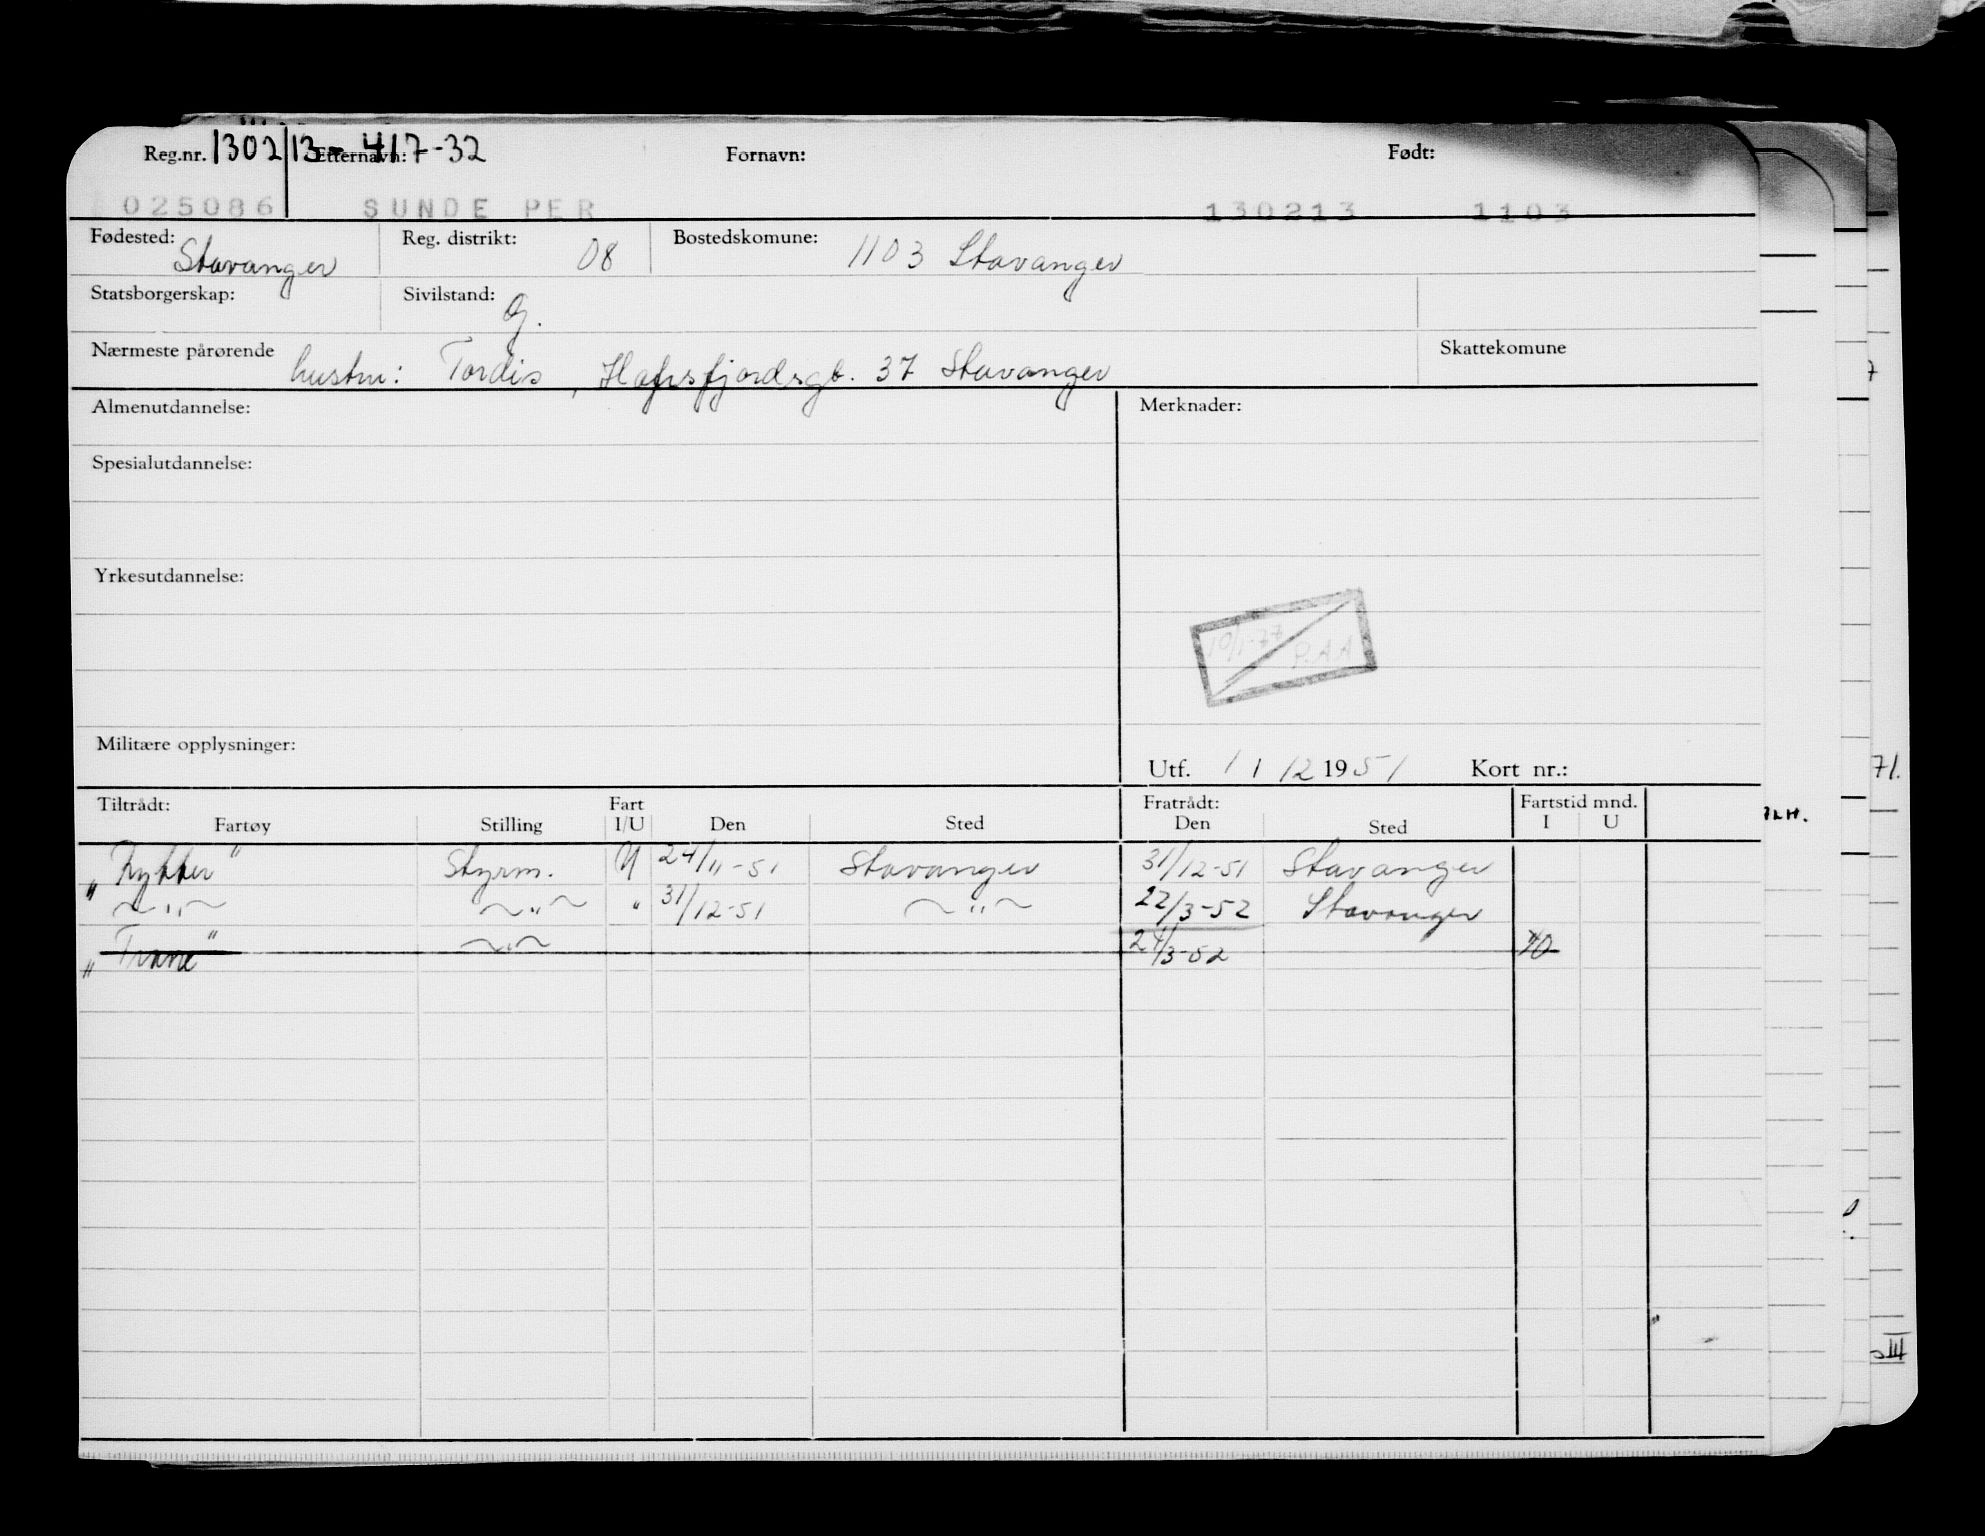 Reg.nr. 1302/13-417-32 Etternavn: Fornavn: Født:
025086 SUNDE PER 130213 1103
Fødested: Stavanger Reg. distrikt: 08 Bostedskomune: 1103 Stavanger
Statsborgerskap: Sivilstand: g.
Nærmeste pårørende hustru: Tordis, Hafrsfjordsgt. 37 Stavanger Skattekomune
Almenutdannelse: Merknader:
Spesialutdannelse:
Yrkesutdannelse:
10/1-77 P.AA
Militære opplysninger:
Utf. 1 1 12 1951 Kort nr.:
Tiltrådt: Fart Fratrådt: Fartstid mnd.
Fartøy Stilling I/U Den Sted Den Sted I U
"Rykker" Styrm. U 24/11-51 Stavanger 31/12-51 Stavanger
~"~ ~"~ " 31/12-51 ~"~ 22/3-52 Stavanger
"Trane" ~"~ 24/3-52
71.